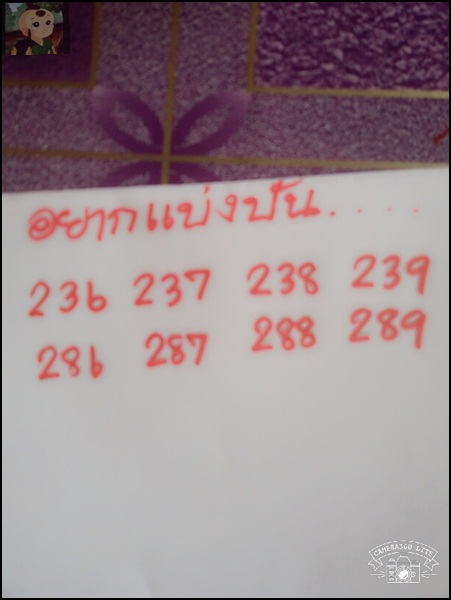 อยากแบ่งปัน.....
236 237 238 239
286 287 288 289
CAMERA360 LITE